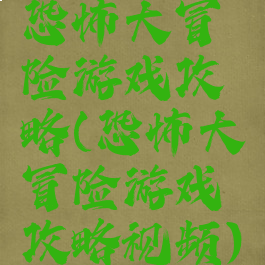 恐怖大冒
险游戏攻
略(恐怖大
冒险游戏
攻略视频)